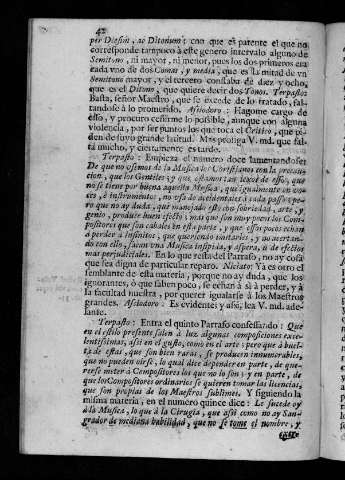 42
per Diesin, ac Ditonum; con que es patente el que no
corresponde tampoco à este genero intervalo alguno de
Semitono, ni mayor, ni menor, pues los dos primeros era
cada vno de dos Comas, y media, que es la mitad de vn
Semitono mayor, y el tercero constaba de diez y ocho,
que es el Ditono, que quiere decir dos Tonos. Terpasto:
Basta, señor Maestro, que se excede de lo tratado, fal-
tandose à lo prometido. Asciodoro: Hagome cargo de
esso, y procuro ceñirme lo possible, aunque con alguna
violencia, por ser puntos los que toca el Critico, que pi-
den de suyo grande latitud. Mas prosiga V. md. que fal-
ta mucho, y ciertamente es tardo.
Terpasto: Empieza el numero doce lamentandose:
De que no usemos de la Musica los Christianos con la precau-
cion, que los Gentiles; y que estamos tan lexos de esso, que
no se tiene por buena aquella Musica, que igualmente en vo-
ces, è instrumento, no usa de accidentales à cada passo; pe-
ro que no ay duda, que manejado esto con sobriedad, arte, y
genio, produce buen efecto; mas que son muy pocos los Com-
positores que son cabales en esta parte, y que essos pocos echan
à perder à infinitos, que queriendo imitarles, y no acertan-
do con ello, sacan una Musica insipida, y aspera, ù de efectos
mas perjudiciales. En lo que resta del Parrafo, no ay cosa
que sea digna de particular reparo. Niciato: Ya es otro el
semblante de esta materia, porque no ay duda, que los
ignorantes, ò que saben poco, se echan à sì à perder, y à
la facultad nuestra, por querer igualarse à los Maestros
grandes. Asciodoro. Es evidente; y assi, lea V. md. ade-
lante.
Terpasto: Entra el quinto Parrafo confessando: Que
en el estilo presente salen à luz algunas composiciones exce-
lentissimas, assi en el gusto, como en el arte; pero que à buel-
tas de estas, que son bien raras, se producen innumerables,
que no pueden oirse, lo qual dice depender en parte, de que-
rerse meter à Compositores los que no lo son; y en parte, de
que los Compositores ordinarios se quieren tomar las licencias,
que son propias de los Maestros sublimes. Y siguiendo la
misma materia, en el numero quince dice: Le sucede oy
à la Musica, lo que à la Cirugia, que assi como no ay San-
grador de mediana habilidad, que no se tome el nombre, y